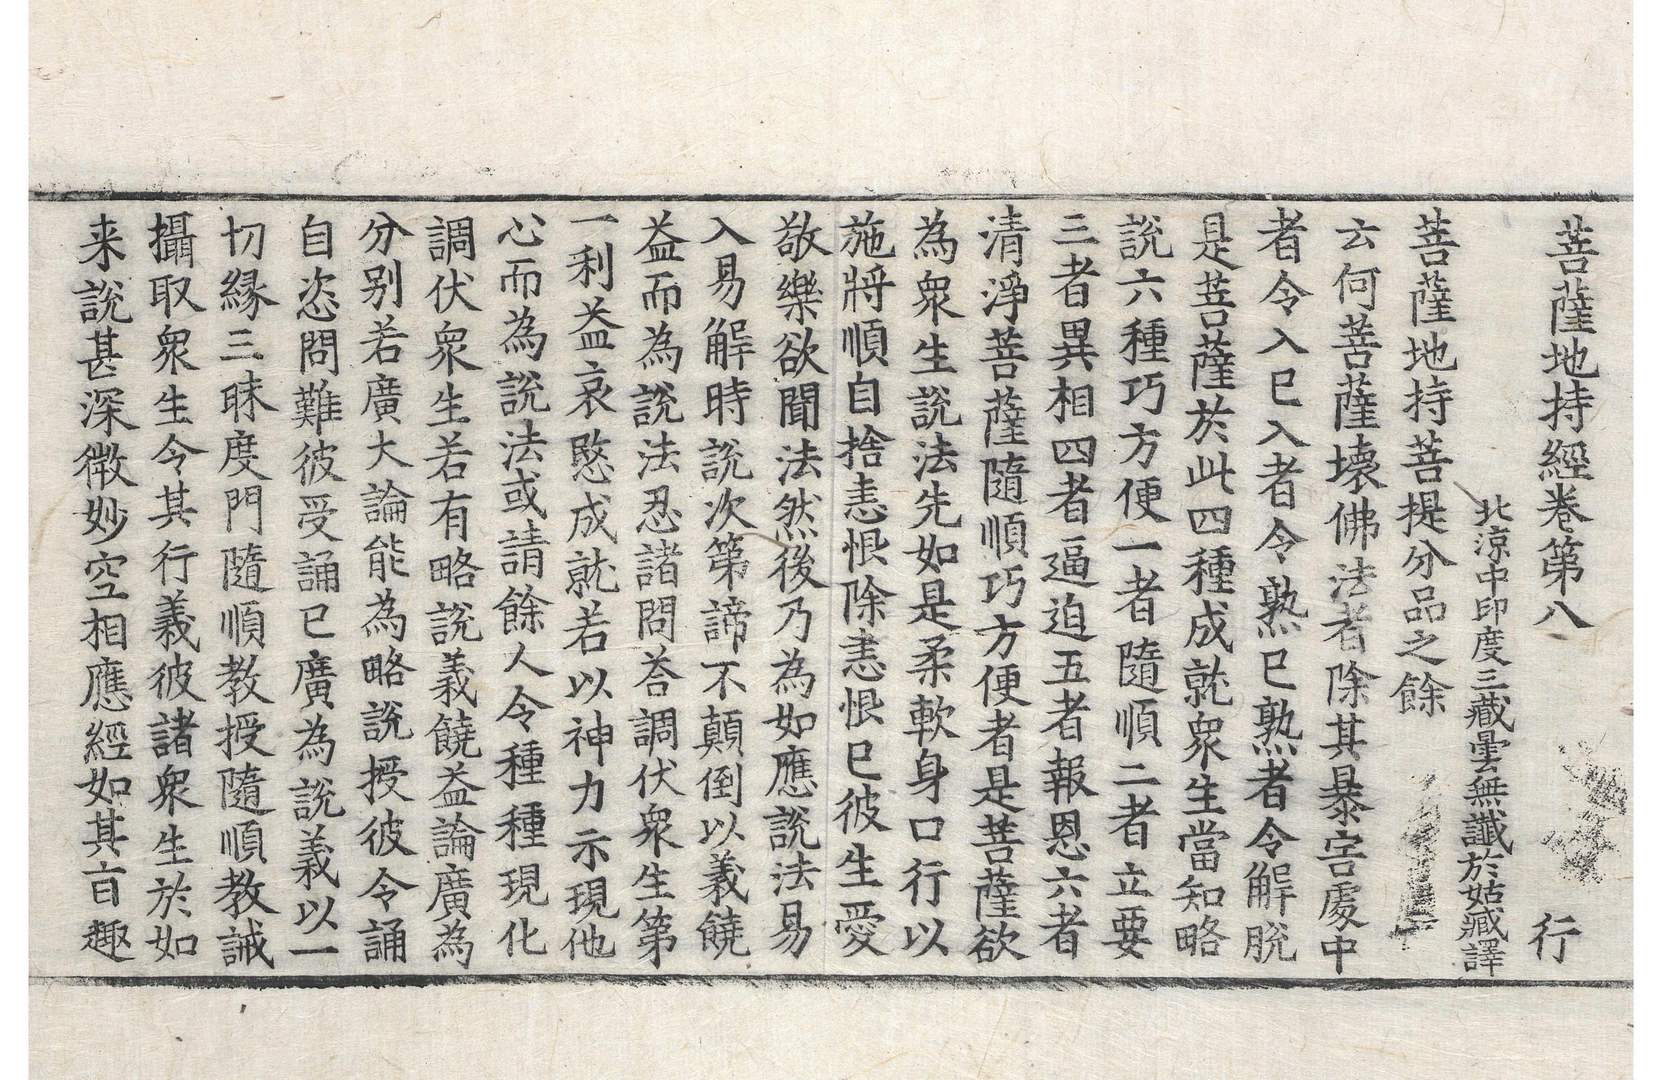 菩薩地持經卷第八 行
北涼中印度三藏曇無讖於姑臧譯
菩薩地持菩提分品之餘
云何菩薩壞佛法者除其暴害處中
者令入已入者令熟已熟者令解脫
是菩薩於此四種成就衆生當知略
說六種巧方便一者隨順二者立要
三者異相四者逼迫五者報恩六者
清淨菩薩隨順巧方便者是菩薩欲
為衆生說法先如是柔軟身口行以
施將順自捨恚恨除恚恨已彼生愛
敬樂欲聞法然後乃為如應說法易
入易解時說次第諦不顛倒以義饒
益而為說法忍諸問荅調伏衆生第
一利益哀愍成就若以神力示現他
心而為說法或請餘人令種種現化
調伏衆生若有略說義饒益論廣為
分别若廣大論能為略說授彼令誦
自恣問難彼受誦已廣為說義以一
切緣三昧度門隨順教授隨順教誡
攝取衆生令其行義彼諸衆生於如
来說甚深微妙空相應經如其㫖趣